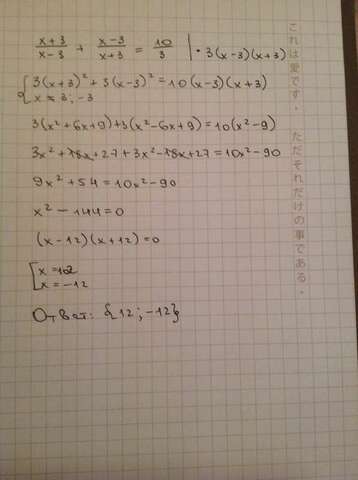 x+3/x-3 + x-3/x+3 = 10/3 | · 3(x-3)(x+3)
{ 3(x+3)² + 3(x-3)² = 10(x-3)(x+3)
x ≠ 3; -3
3(x²+6x+9)+3(x²-6x+9)=10(x²-9)
3x²+18x+27+3x²-18x+27=10x²-90
9x²+54=10x²-90
x²-144=0
(x-12)(x+12)=0
[ x=12
x=-12
Ответ: {12; -12}
これは愛です。 ただそれだけの事である。